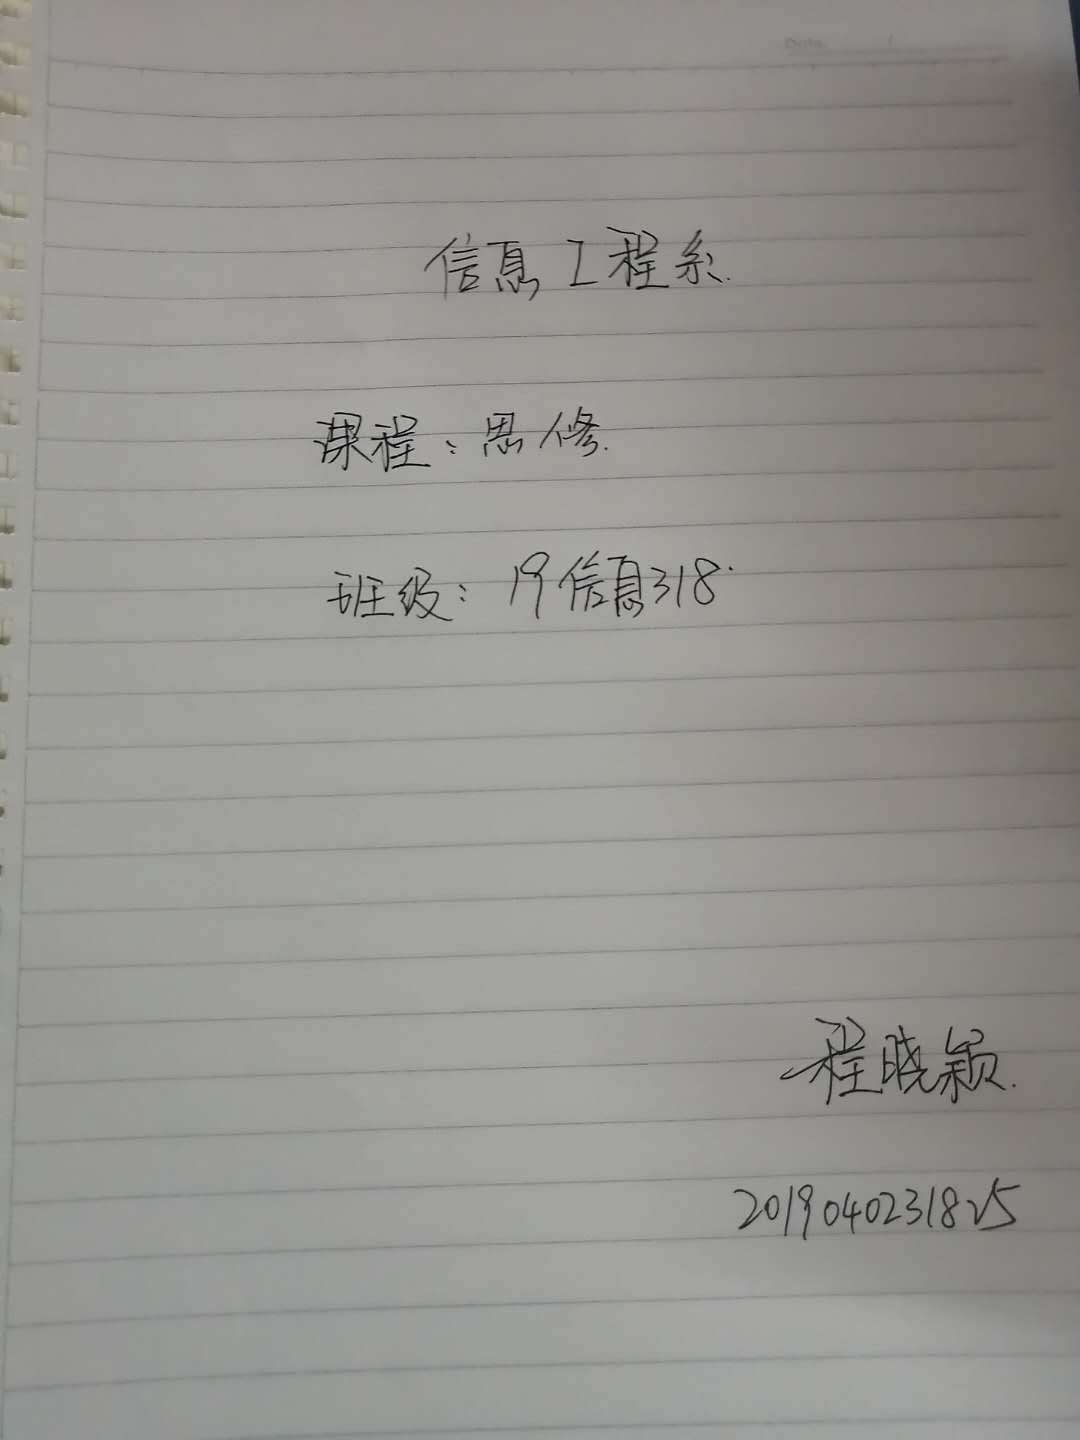 Date
信息工程系.
课程：思修.
班级：19信息318.
程晓颖.
2019040231825